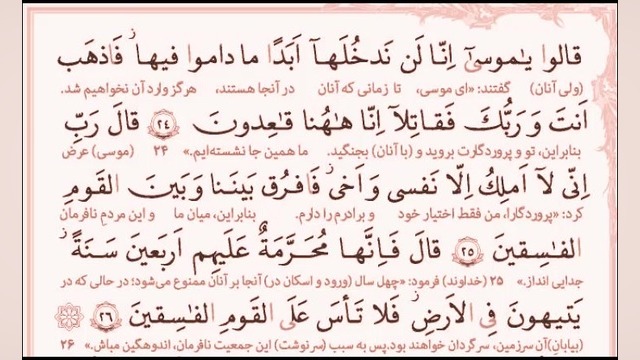 قالوا یٰموسیٰٓ اِنّا لَن نَدخُلَهاۤ اَبَدًا ما داموا فیها ۖ فَاذهَب
(ولی آنان) گفتند: «ای موسی، تا زمانی که آنان در آنجا هستند، هرگز وارد آن نخواهیم شد.
اَنتَ وَ رَبُّكَ فَقاتِلاۤ اِنّا هٰهُنا قٰعِدونَ ﴿۲۴﴾ قالَ رَبِّ
بنابراین، تو و پروردگارت بروید و (با آنان) بجنگید. ما همین جا نشسته‌ایم.» ۲۴ (موسی) عرض
اِنّی لاۤ اَملِكُ اِلّا نَفسی وَ اَخی ۖ فَافرُق بَینَنا وَ بَینَ القَومِ
کرد: «پروردگارا، من فقط اختیار خود و برادرم را دارم. بنابراین، میان ما و این مردمِ نافرمان
الفٰسِقینَ ﴿۲۵﴾ قالَ فَاِنَّها مُحَرَّمَةٌ عَلَیهِم اَربَعینَ سَنَةً ۛ
جدایی انداز.» ۲۵ (خداوند) فرمود: «چهل سال (ورود و اسکان در) آنجا بر آنان ممنوع می‌شود؛ در حالی که در
یَتیهونَ فِی الاَرضِ ۚ فَلا تَأسَ عَلَی القَومِ الفٰسِقینَ ﴿۲۶﴾
(بیابانِ) آن سرزمین، سرگردان خواهند بود. پس به سبب (سرنوشت) این جمعیت نافرمان، اندوهگین مباش.» ۲۶